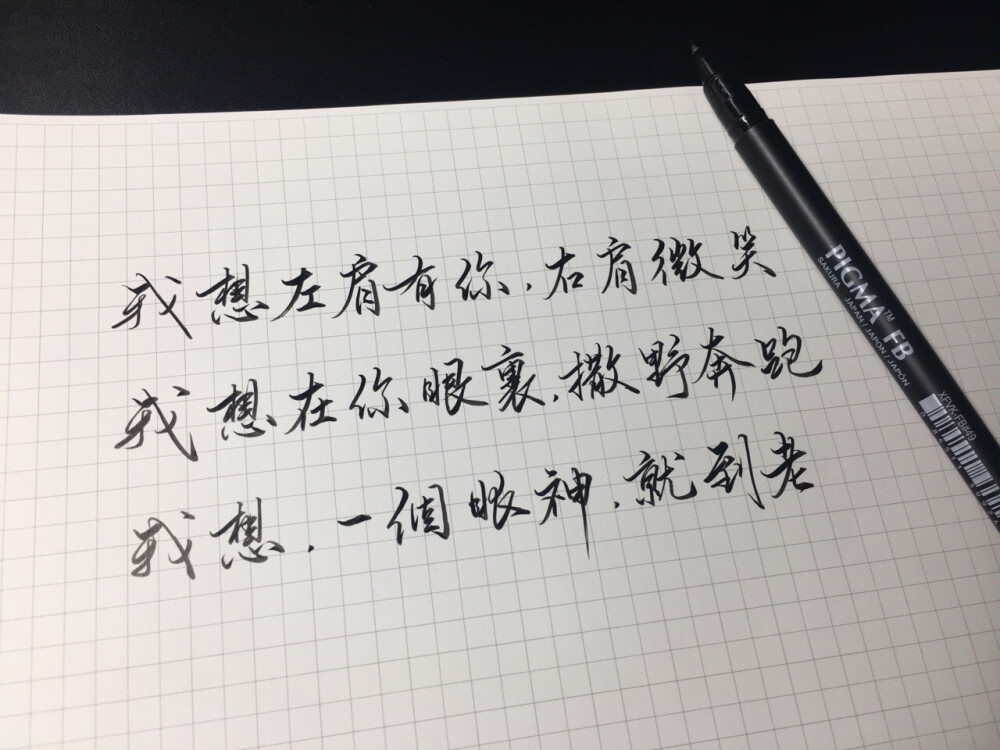 我想左肩有你,右肩微笑
我想在你眼裏,撒野奔跑
我想,一個眼神,就到老
PIGMA™ FB
SAKURA JAPAN/JAPON/JAPÓN
XFVK-FB#49